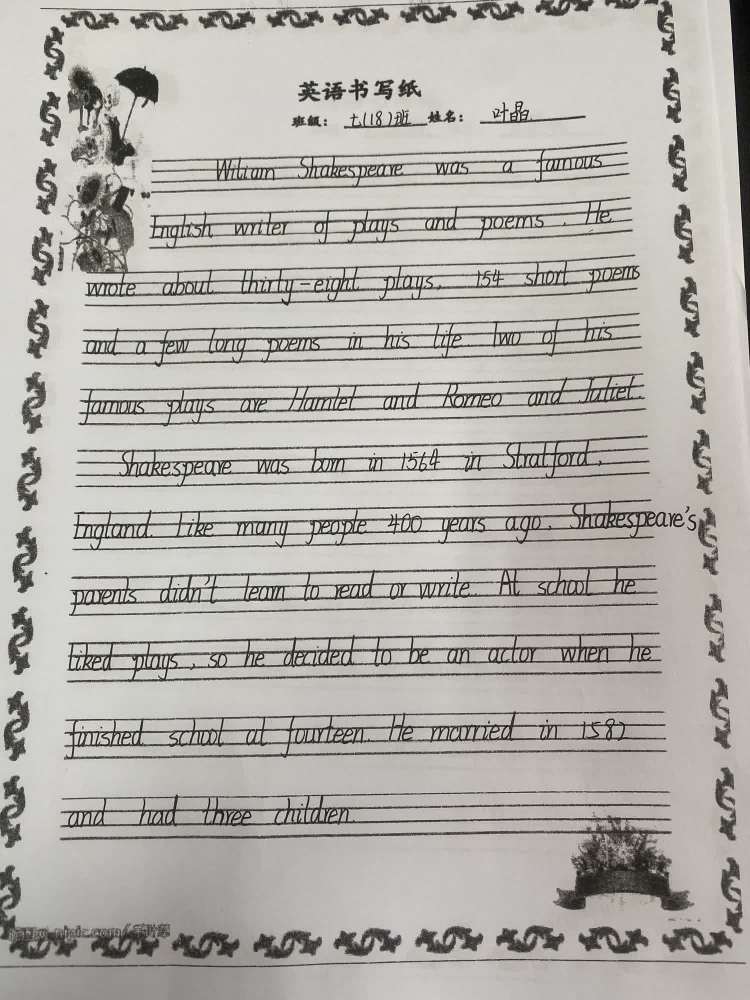 英语书写纸
班级: 七(18)班 姓名: 叶晶
William Shakespeare was a famous
English writer of plays and poems. He
wrote about thirty-eight plays, 154 short poems
and a few long poems in his life. Two of his
famous plays are Hamlet and Romeo and Juliet.
Shakespeare was born in 1564 in Stratford,
England. Like many people 400 years ago, Shakespeare's
parents didn't learn to read or write. At school he
liked plays, so he decided to be an actor when he
finished school at fourteen. He married in 1582
and had three children.